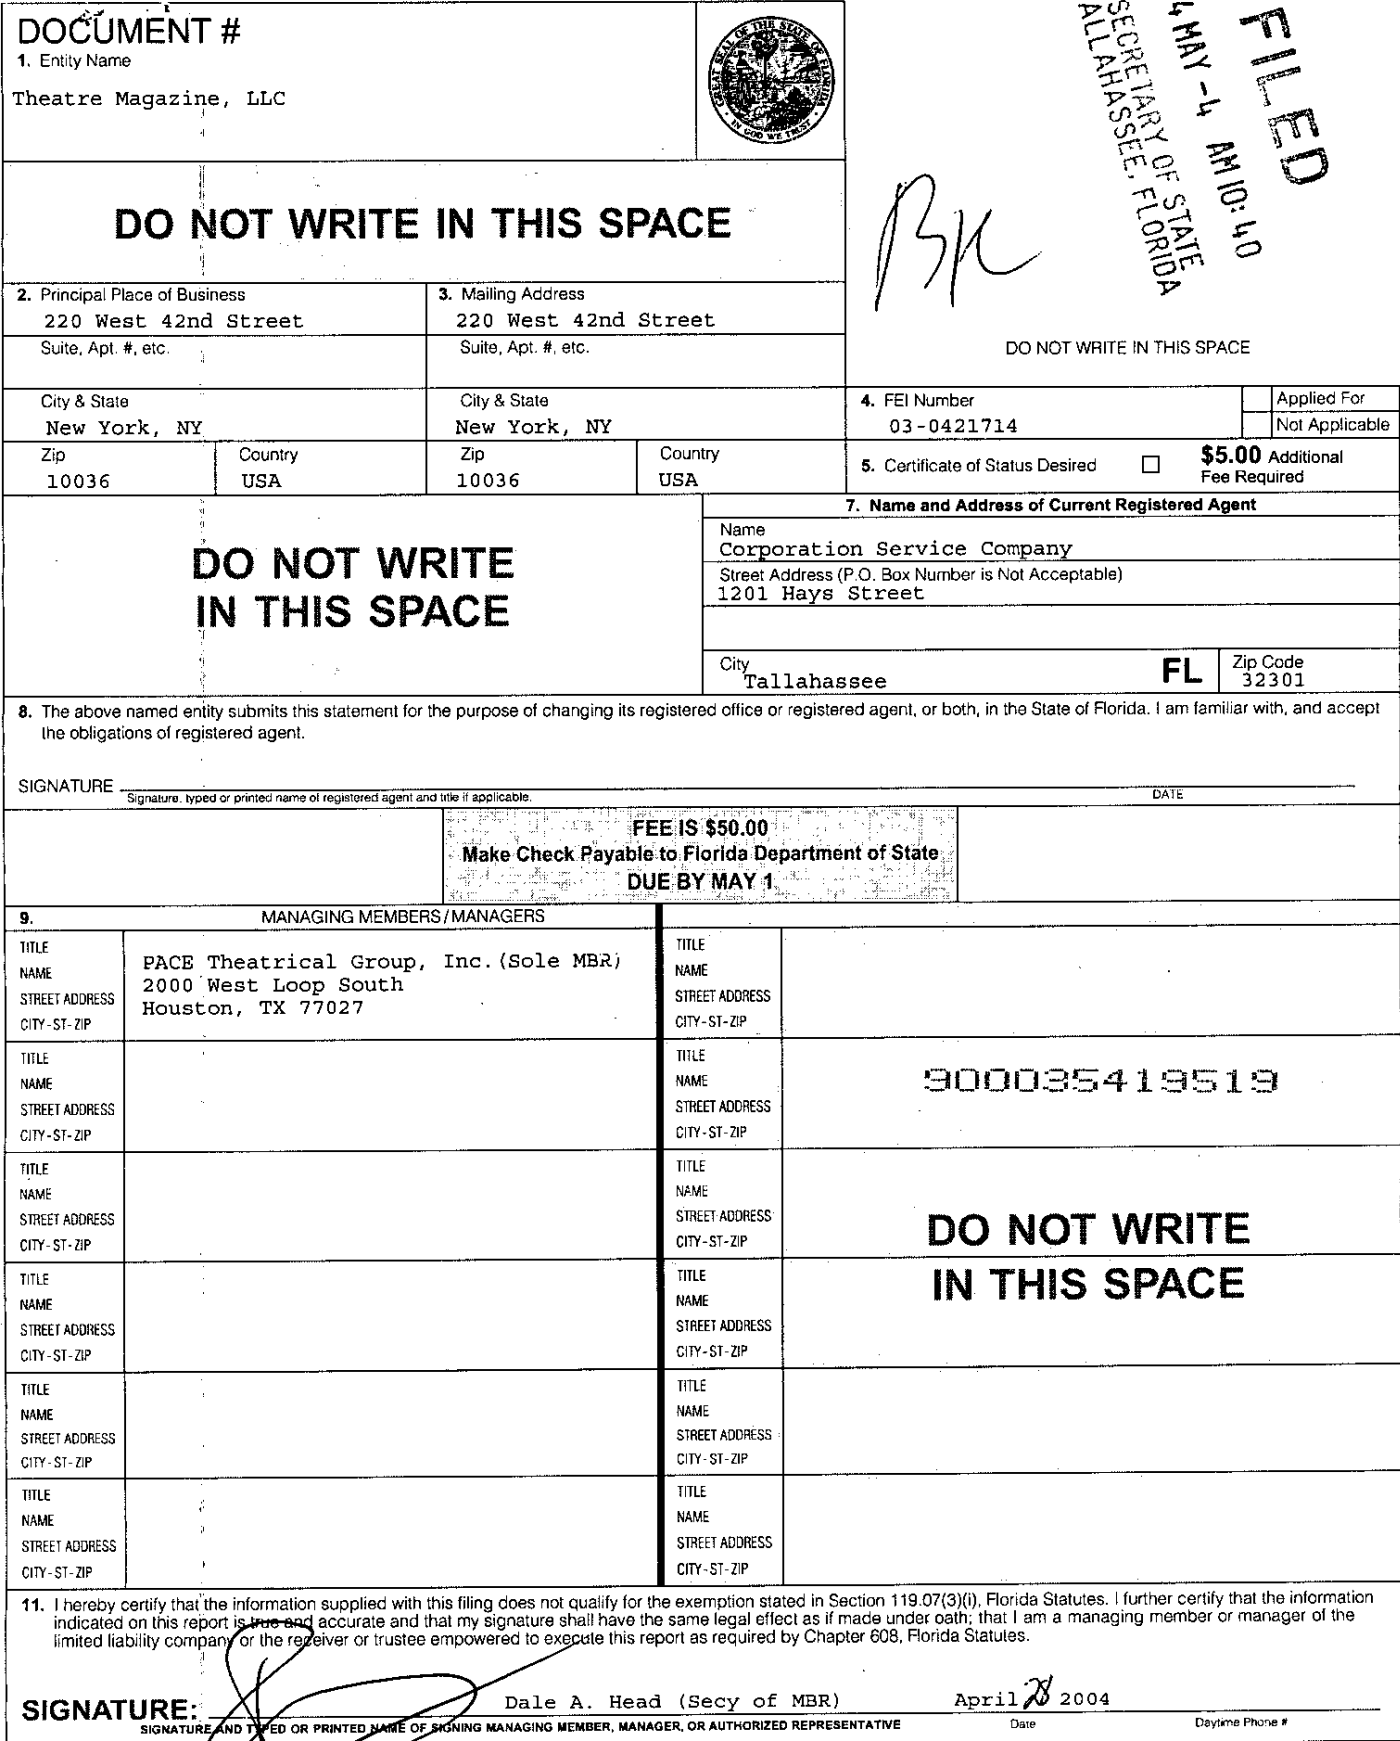 DOCUMENT #
1. Entity Name
Theatre Magazine, LLC
GREAT SEAL OF THE STATE OF FLORIDA
IN GOD WE TRUST
FILED
4 MAY -4 AM 10:40
SECRETARY OF STATE
ALLAHASSEE, FLORIDA
DO NOT WRITE IN THIS SPACE
BK
DO NOT WRITE IN THIS SPACE
2. Principal Place of Business
220 West 42nd Street
Suite, Apt. #, etc.
City & State
New York, NY
Zip
10036
Country
USA
3. Mailing Address
220 West 42nd Street
Suite, Apt. #, etc.
City & State
New York, NY
Zip
10036
Country
USA
4. FEI Number
03-0421714
Applied For
Not Applicable
5. Certificate of Status Desired
$5.00 Additional
Fee Required
DO NOT WRITE
IN THIS SPACE
7. Name and Address of Current Registered Agent
Name
Corporation Service Company
Street Address (P.O. Box Number is Not Acceptable)
1201 Hays Street
City
Tallahassee
FL
Zip Code
32301
8. The above named entity submits this statement for the purpose of changing its registered office or registered agent, or both, in the State of Florida. I am familiar with, and accept
the obligations of registered agent.
SIGNATURE
Signature, typed or printed name of registered agent and title if applicable.
DATE
FEE IS $50.00
Make Check Payable to Florida Department of State
DUE BY MAY 1
9. MANAGING MEMBERS/MANAGERS
TITLE
NAME
STREET ADDRESS
CITY-ST-ZIP
PACE Theatrical Group, Inc.(Sole MBR)
2000 West Loop South
Houston, TX 77027
TITLE
NAME
STREET ADDRESS
CITY-ST-ZIP
TITLE
NAME
STREET ADDRESS
CITY-ST-ZIP
TITLE
NAME
STREET ADDRESS
CITY-ST-ZIP
900035419519
TITLE
NAME
STREET ADDRESS
CITY-ST-ZIP
TITLE
NAME
STREET ADDRESS
CITY-ST-ZIP
DO NOT WRITE
IN THIS SPACE
TITLE
NAME
STREET ADDRESS
CITY-ST-ZIP
TITLE
NAME
STREET ADDRESS
CITY-ST-ZIP
TITLE
NAME
STREET ADDRESS
CITY-ST-ZIP
TITLE
NAME
STREET ADDRESS
CITY-ST-ZIP
TITLE
NAME
STREET ADDRESS
CITY-ST-ZIP
TITLE
NAME
STREET ADDRESS
CITY-ST-ZIP
11. I hereby certify that the information supplied with this filing does not qualify for the exemption stated in Section 119.07(3)(i), Florida Statutes. I further certify that the information
indicated on this report is true and accurate and that my signature shall have the same legal effect as if made under oath; that I am a managing member or manager of the
limited liability company or the receiver or trustee empowered to execute this report as required by Chapter 608, Florida Statutes.
SIGNATURE:
Dale A. Head (Secy of MBR)
April 28 2004
SIGNATURE AND TYPED OR PRINTED NAME OF SIGNING MANAGING MEMBER, MANAGER, OR AUTHORIZED REPRESENTATIVE
Date
Daytime Phone #